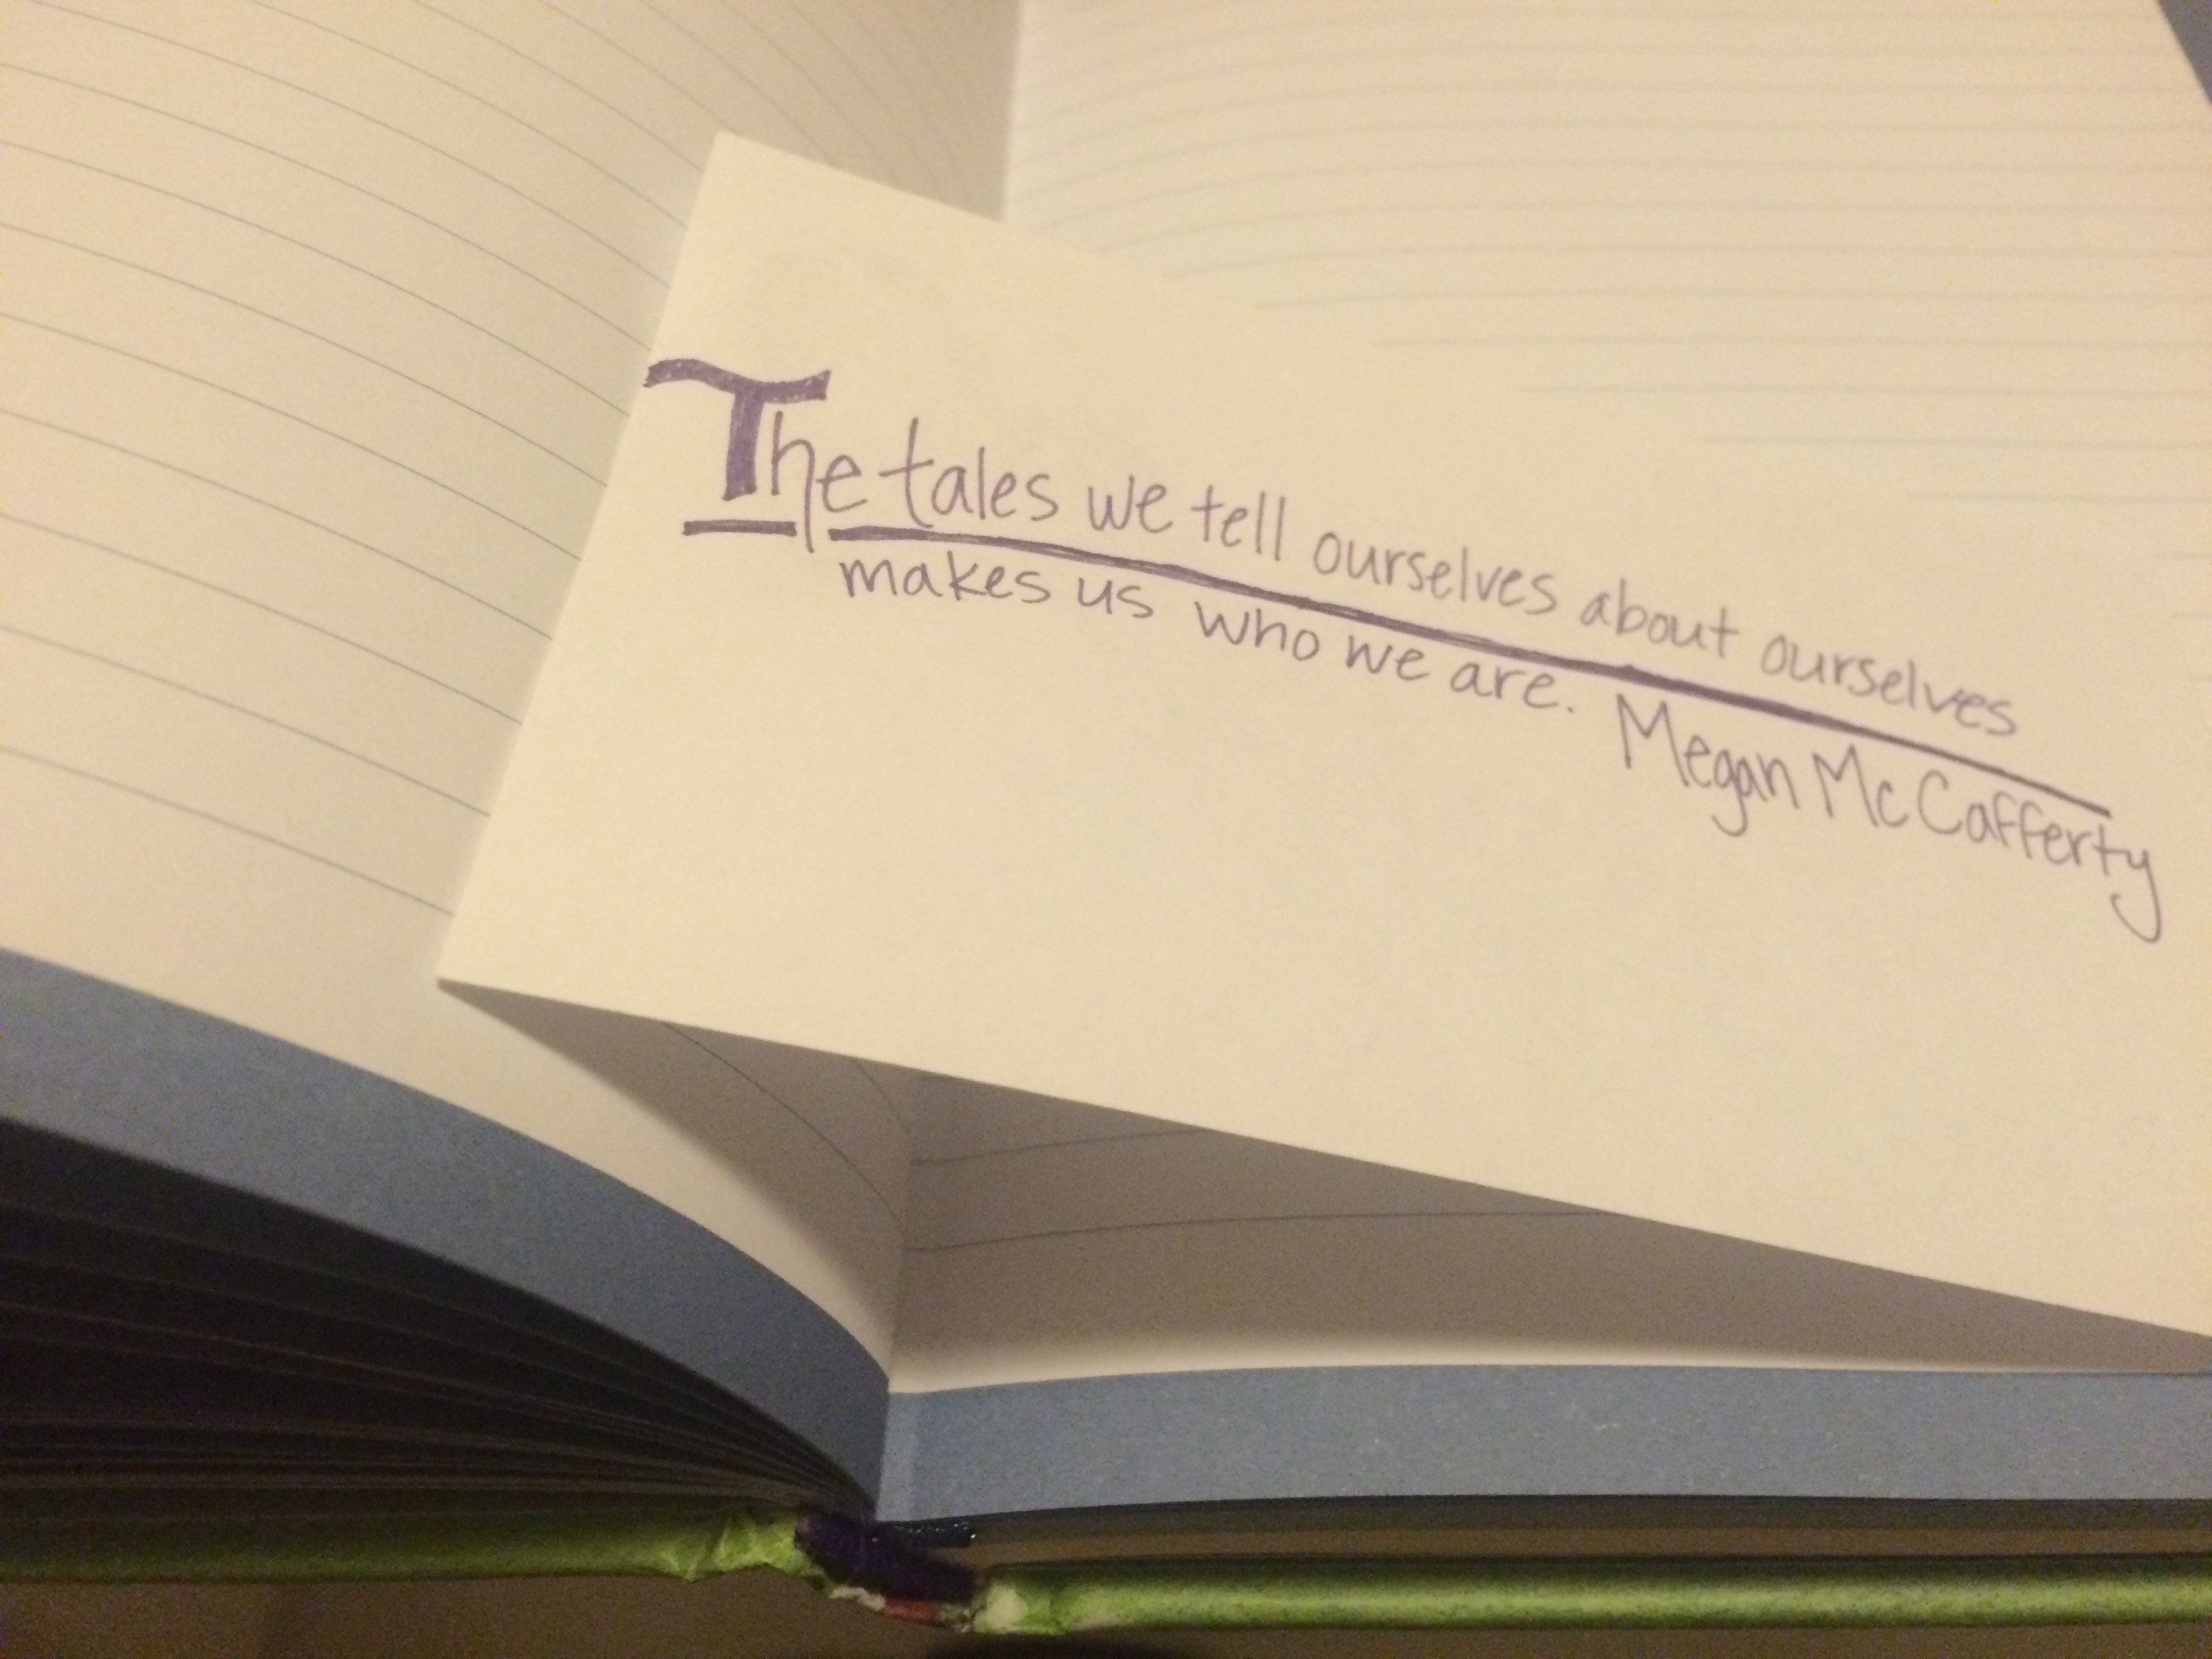 The tales we tell ourselves about ourselves
makes us who we are. Megan McCafferty